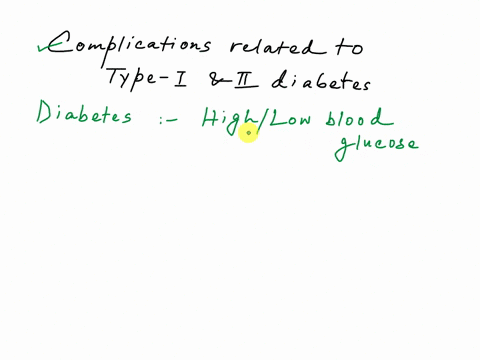 Complications related to
Type-I & II diabetes
Diabetes :- High/Low blood
glucose